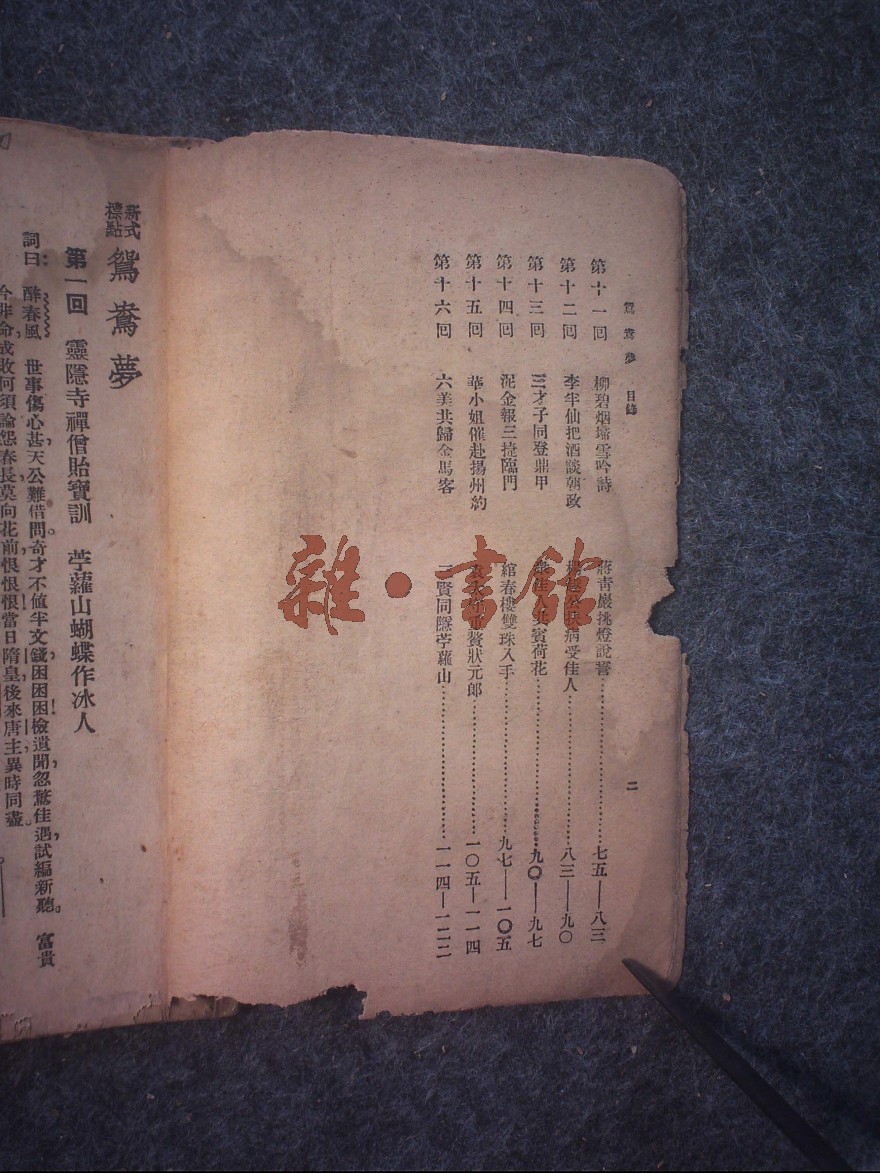 鴛鴦夢 目錄
二
第十一回 柳碧烟掃雪吟詩 蔣青巖挑燈說誓 七五—八三
第十二回 李半仙把酒談朝政 病受佳人 八三—九〇
第十三回 三才子同登鼎甲 賓荷花 九〇—九七
第十四回 泥金報三捷臨門 綰春樓雙珠入手 九七—一〇五
第十五回 華小姐催赴揚州約 贅狀元郎 一〇五—一一四
第十六回 六美共歸金馬客 三賢同隱苧蘿山 一一四—一二二
雜·書館
新式標點 鴛鴦夢
第一回 靈隱寺禪僧貽寶訓 苧蘿山蝴蝶作冰人
詞曰：醉春風 世事傷心甚，天公難借問，奇才不値半文錢，困困困！檢遺聞，忽驚佳遇，試編新聽。 富貴
今非命，成敗何須論，怨春長莫向花前恨恨恨！當日隋皇，後來唐主，異時同盡。